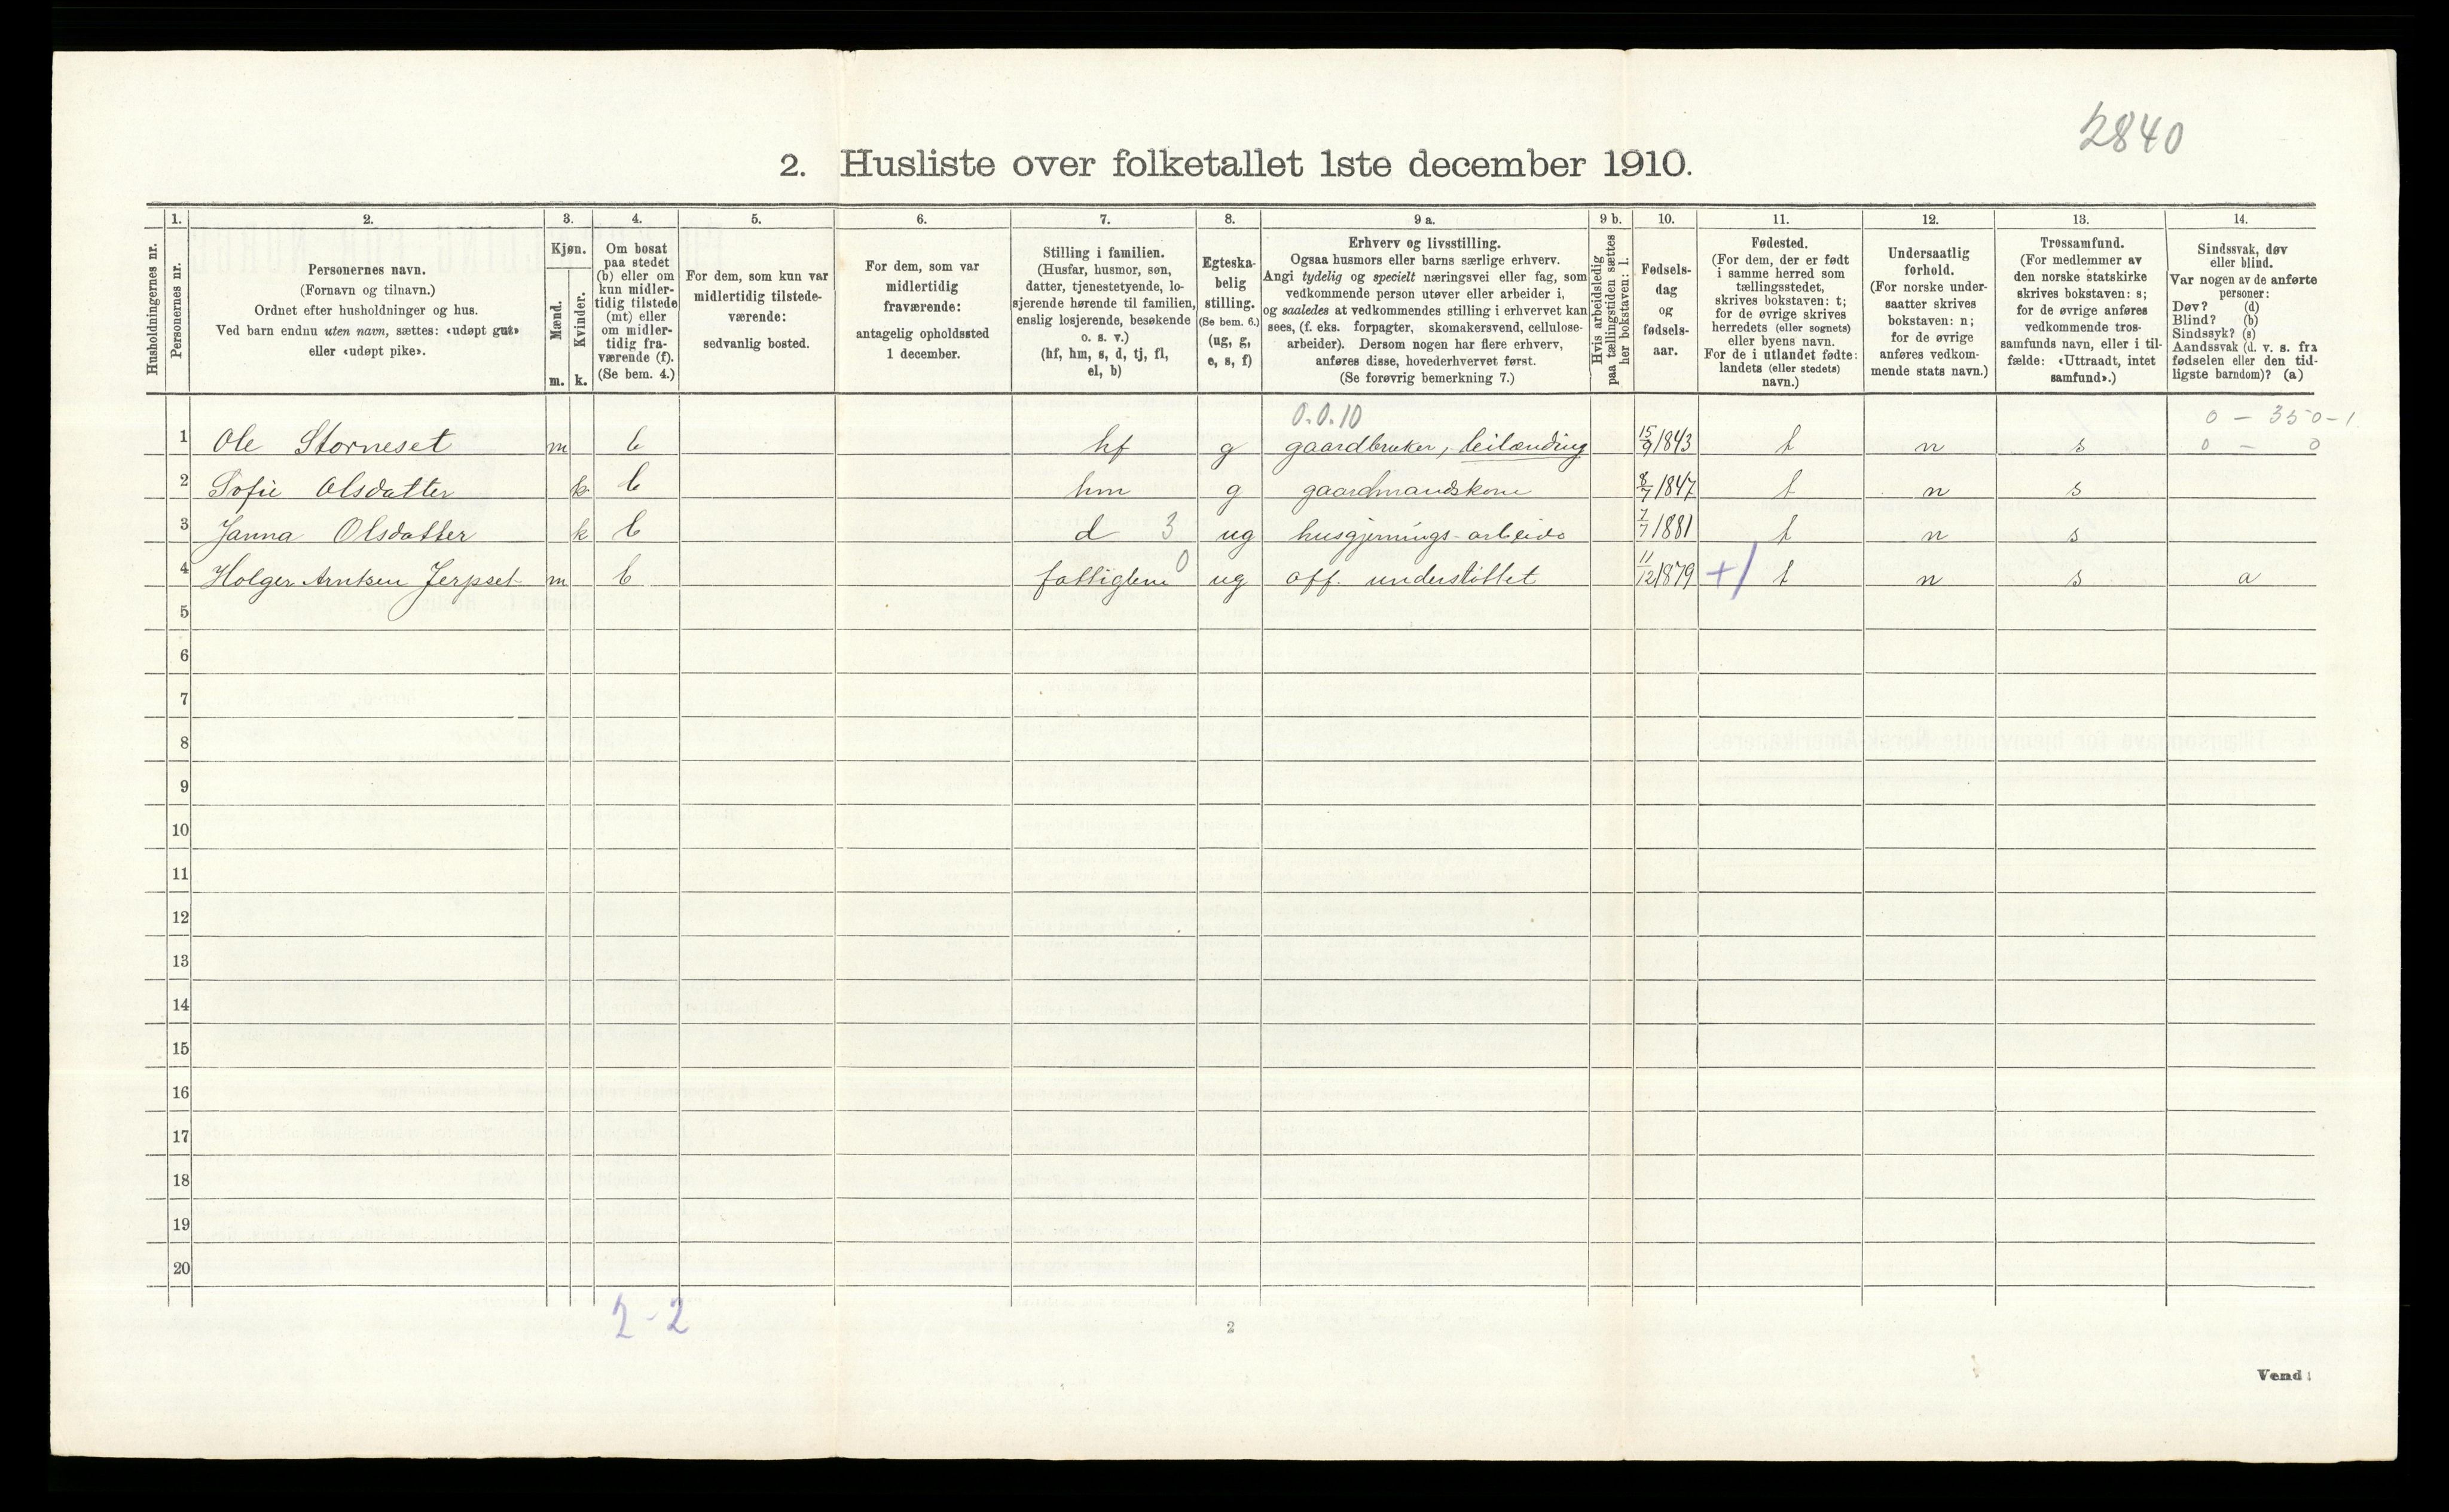 2840
2. Husliste over folketallet 1ste december 1910.
1. 2. 3. 4. 5. 6. 7. 8. 9 a. 9 b. 10. 11. 12. 13. 14.
Husholdningernes nr.
Personernes nr.
Personernes navn.
(Fornavn og tilnavn.)
Ordnet efter husholdninger og hus.
Ved barn endnu uten navn, sættes: «udøpt gut»
eller «udøpt pike».
Kjøn.
Mænd.
Kvinder.
m. k.
Om bosat
paa stedet
(b) eller om
kun midler-
tidig tilstede
(mt) eller
om midler-
tidig fra-
værende (f).
(Se bem. 4.)
For dem, som kun var
midlertidig tilstede-
værende:
sedvanlig bosted.
For dem, som var
midlertidig
fraværende:
antagelig opholdssted
1 december.
Stilling i familien.
(Husfar, husmor, søn,
datter, tjenestetyende, lo-
sjerende hørende til familien,
enslig losjerende, besøkende
o. s. v.)
(hf, hm, s, d, tj, fl,
el, b)
Egteska-
belig
stilling.
(Se bem. 6.)
(ug, g,
e, s, f)
Erhverv og livsstilling.
Ogsaa husmors eller barns særlige erhverv.
Angi tydelig og specielt næringsvei eller fag, som
vedkommende person utøver eller arbeider i,
og saaledes at vedkommendes stilling i erhvervet kan
sees, (f. eks. forpagter, skomakersvend, cellulose-
arbeider). Dersom nogen har flere erhverv,
anføres disse, hovederhvervet først.
(Se forøvrig bemerkning 7.)
Hvis arbeidsledig
paa tællingstiden sættes
her bokstaven: l.
Fødsels-
dag
og
fødsels-
aar.
Fødested.
(For dem, der er født
i samme herred som
tællingsstedet,
skrives bokstaven: t;
for de øvrige skrives
herredets (eller sognets)
eller byens navn.
For de i utlandet fødte:
landets (eller stedets)
navn.)
Undersaatlig
forhold.
(For norske under-
saatter skrives
bokstaven: n;
for de øvrige
anføres vedkom-
mende stats navn.)
Trossamfund.
(For medlemmer av
den norske statskirke
skrives bokstaven: s;
for de øvrige anføres
vedkommende tros-
samfunds navn, eller i til-
fælde: «Uttraadt, intet
samfund».)
Sindssvak, døv
eller blind.
Var nogen av de anførte
personer:
Døv? (d)
Blind? (b)
Sindssyk? (s)
Aandssvak (d. v. s. fra
fødselen eller den tid-
ligste barndom)? (a)
0.0.10 0 - 350-1
1 Ole Storneset m b hf g gaardbruker, leilænding 15/9 1843 t n s 0 - 0
2 Sofie Olsdatter k b hm g gaardmandskone 8/7 1847 t n s
3 Janna Olsdatter k b d 3 ug husgjernings-arbeide 7/7 1881 t n s
4 Holger Arntsen Jerpset m b fattiglem 0 ug off. understöttet 11/12 1879 + t n s a
5
6
7
8
9
10
11
12
13
14
15
16
17
18
19
20
2-2
2
Vend!